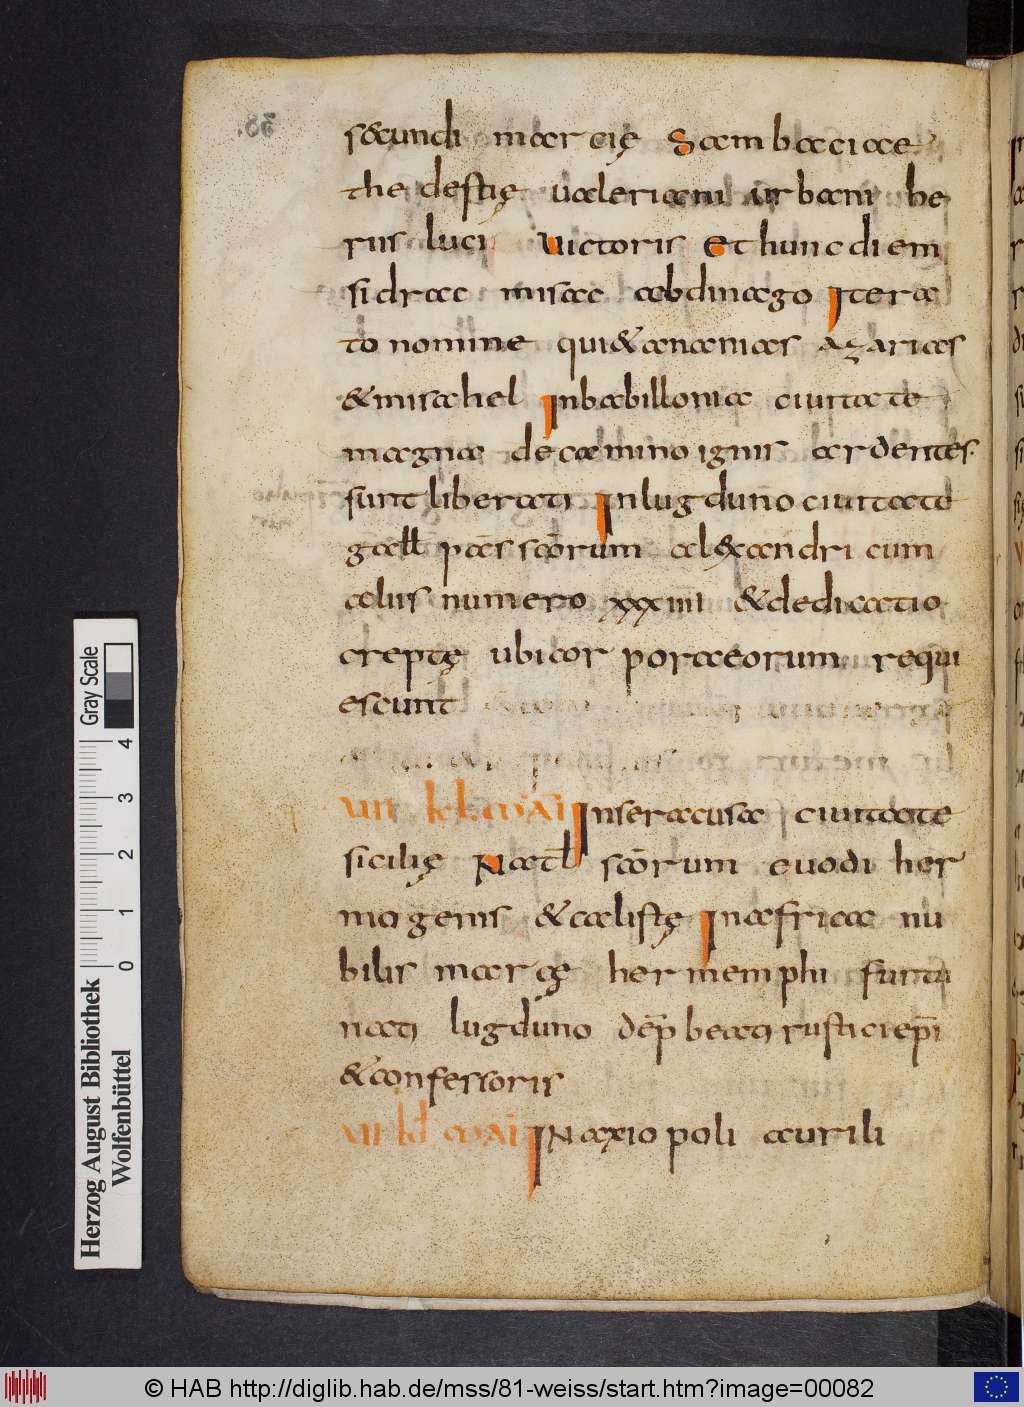 s&cundi marcię Sambaciae
thedestię ualeriani urbani he
rus luci Uictoris Et hunc diem
sidrac misac abdinago Itera
to nomine qui&ananias Azarias
&misahel Inbabillonia ciuitate
magna decamino ignis ardentes.
sunt liberati Inlugduno ciuitate
gall pas̄ scōrum alexandri cum
aliis numero xxxiiii &dedicatio
creptę ubicorporaeorum requi
escunt
VIII kl mai Inseracusa ciuitate
sicilię Natl scōrum euodi her
mogenis &calistę Inafrica nu
bilis marcę hermemphi furtu
nati lugduno dep̄ beati rusticiepī
&confessoris
VII kl mai INaxiopoli ciurili
38.
Herzog August Bibliothek
Wolfenbüttel
0 1 2 3 4
Gray Scale
© HAB http://diglib.hab.de/mss/81-weiss/start.htm?image=00082